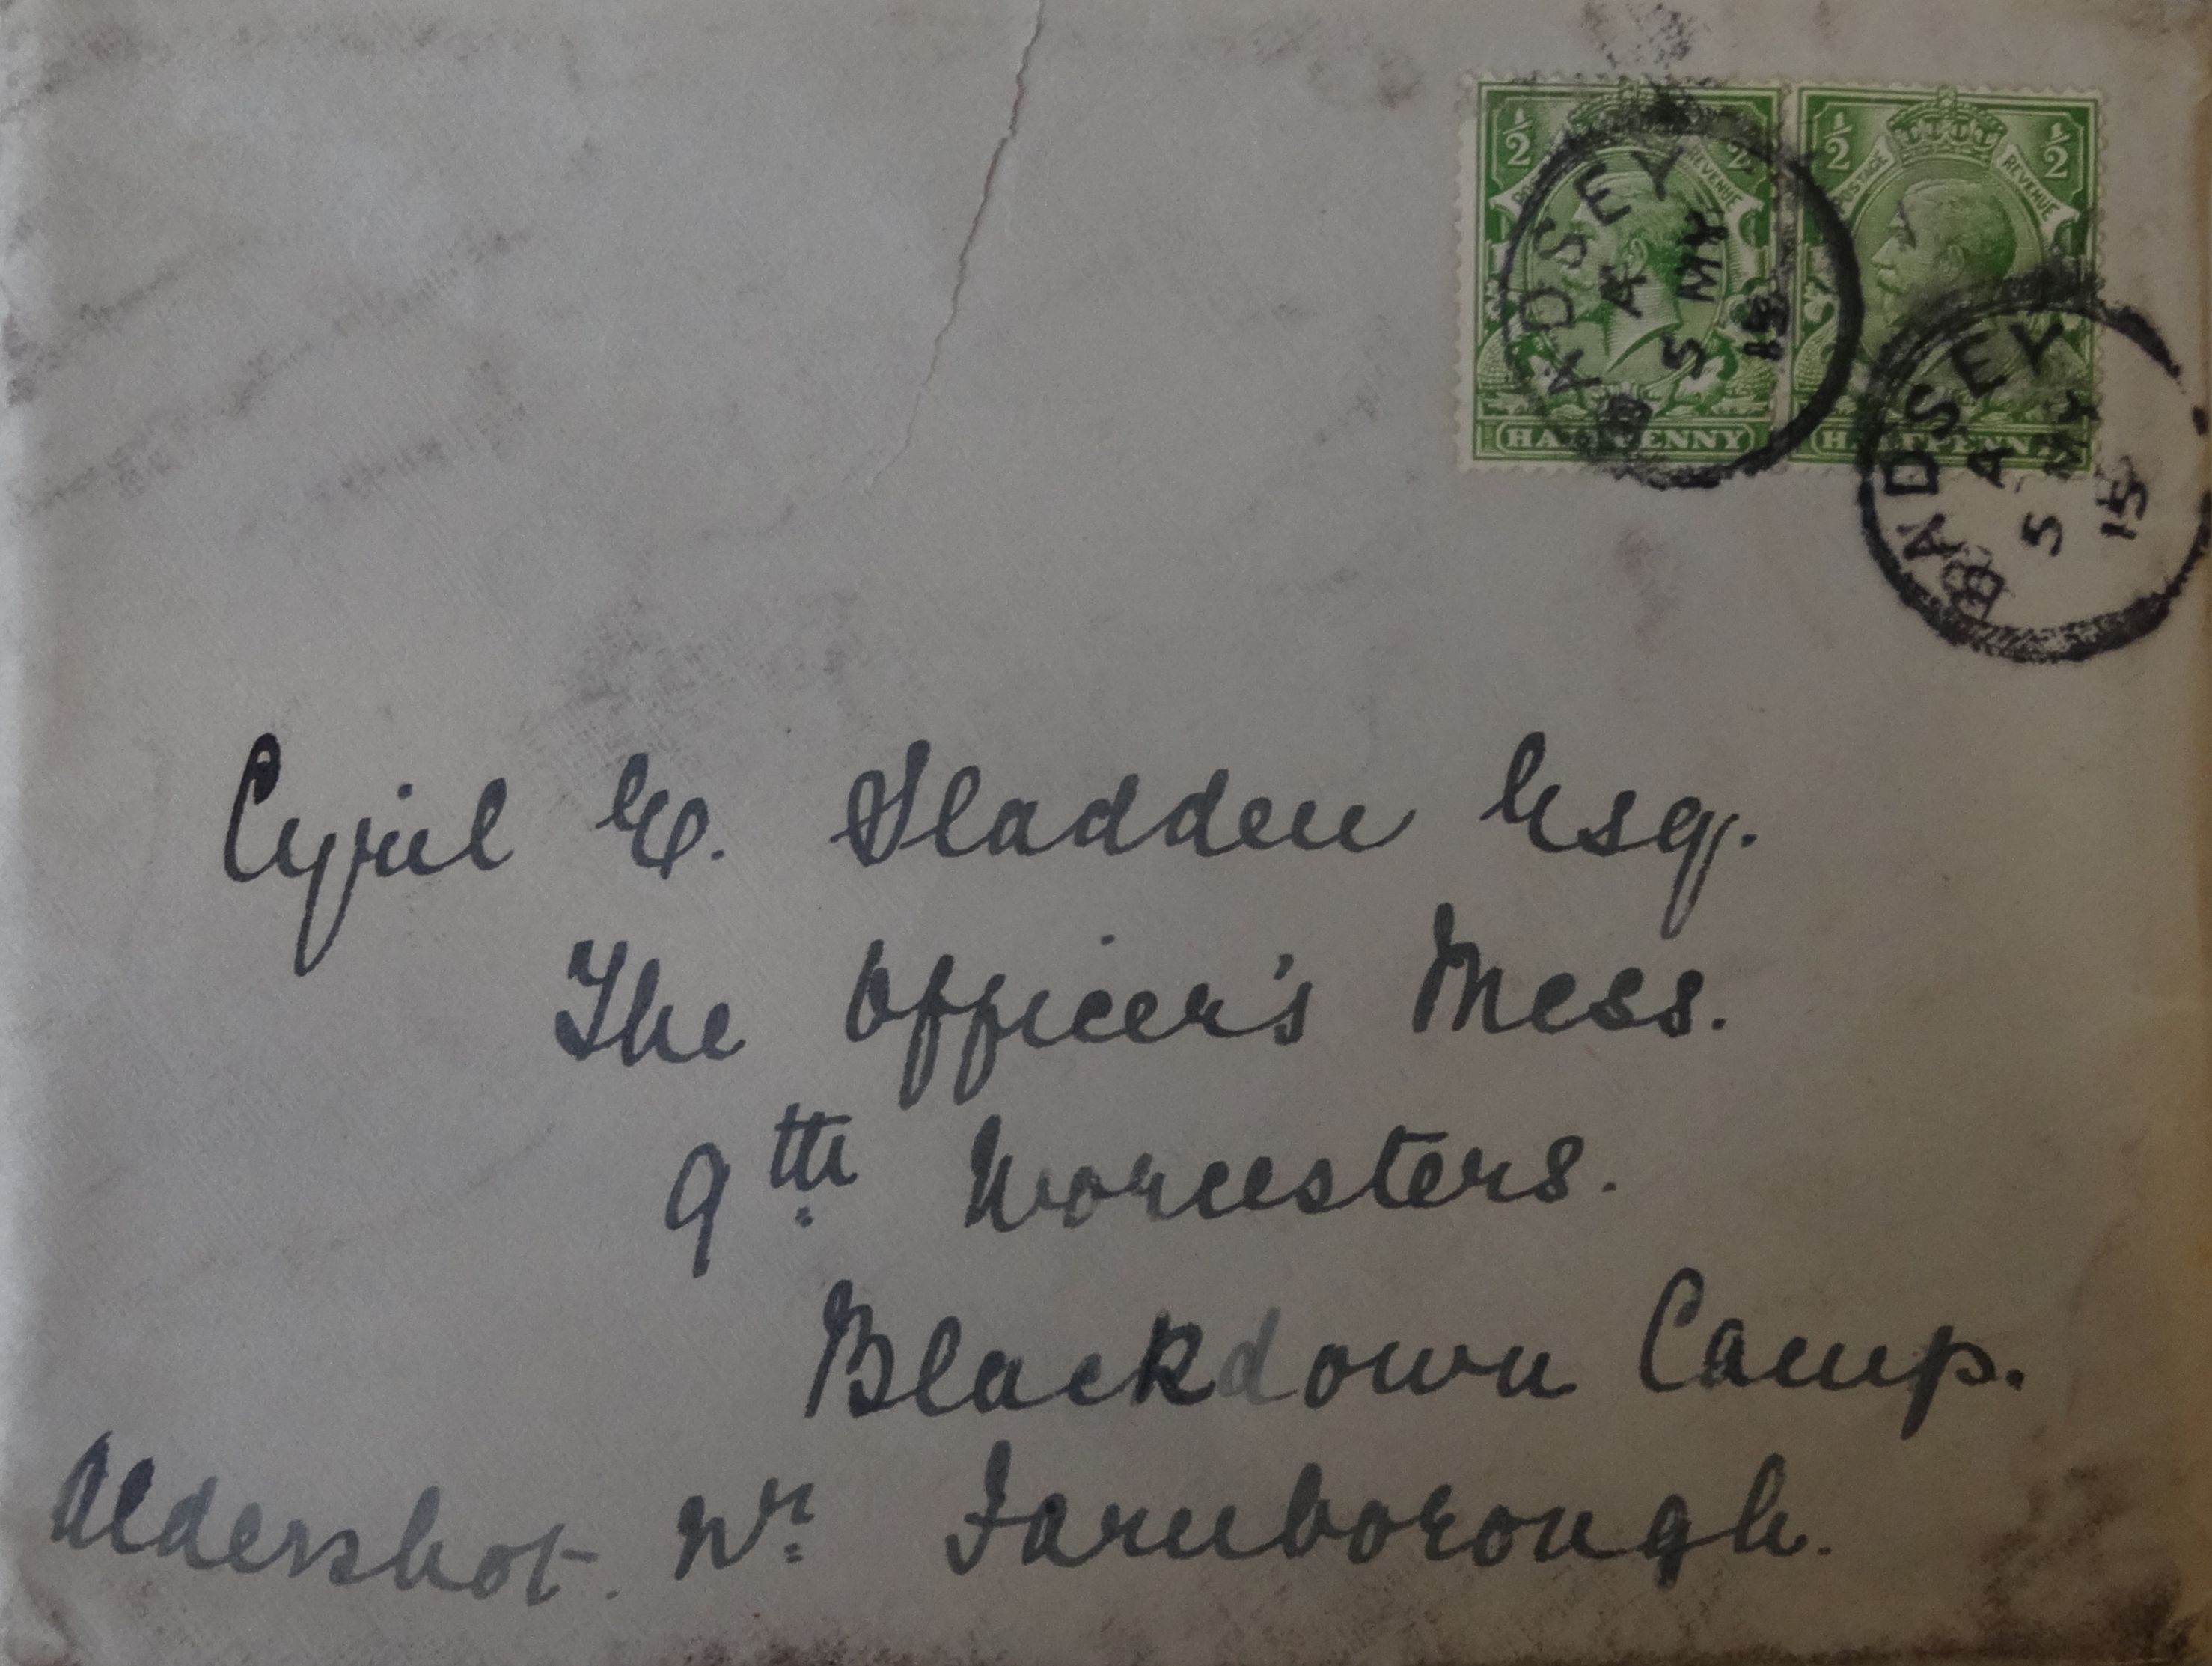 ½ ½ ½
POSTAGE REVENUE
REVENUE
HALFPENNY HALFPENNY
BADSEY
A
5 MY
15
BADSEY
A
5 MY
15
Cyril E. Sladden Esq.
The Officer's Mess.
9th Worcesters.
Blackdown Camp.
Aldershot. Nr Farnborough.